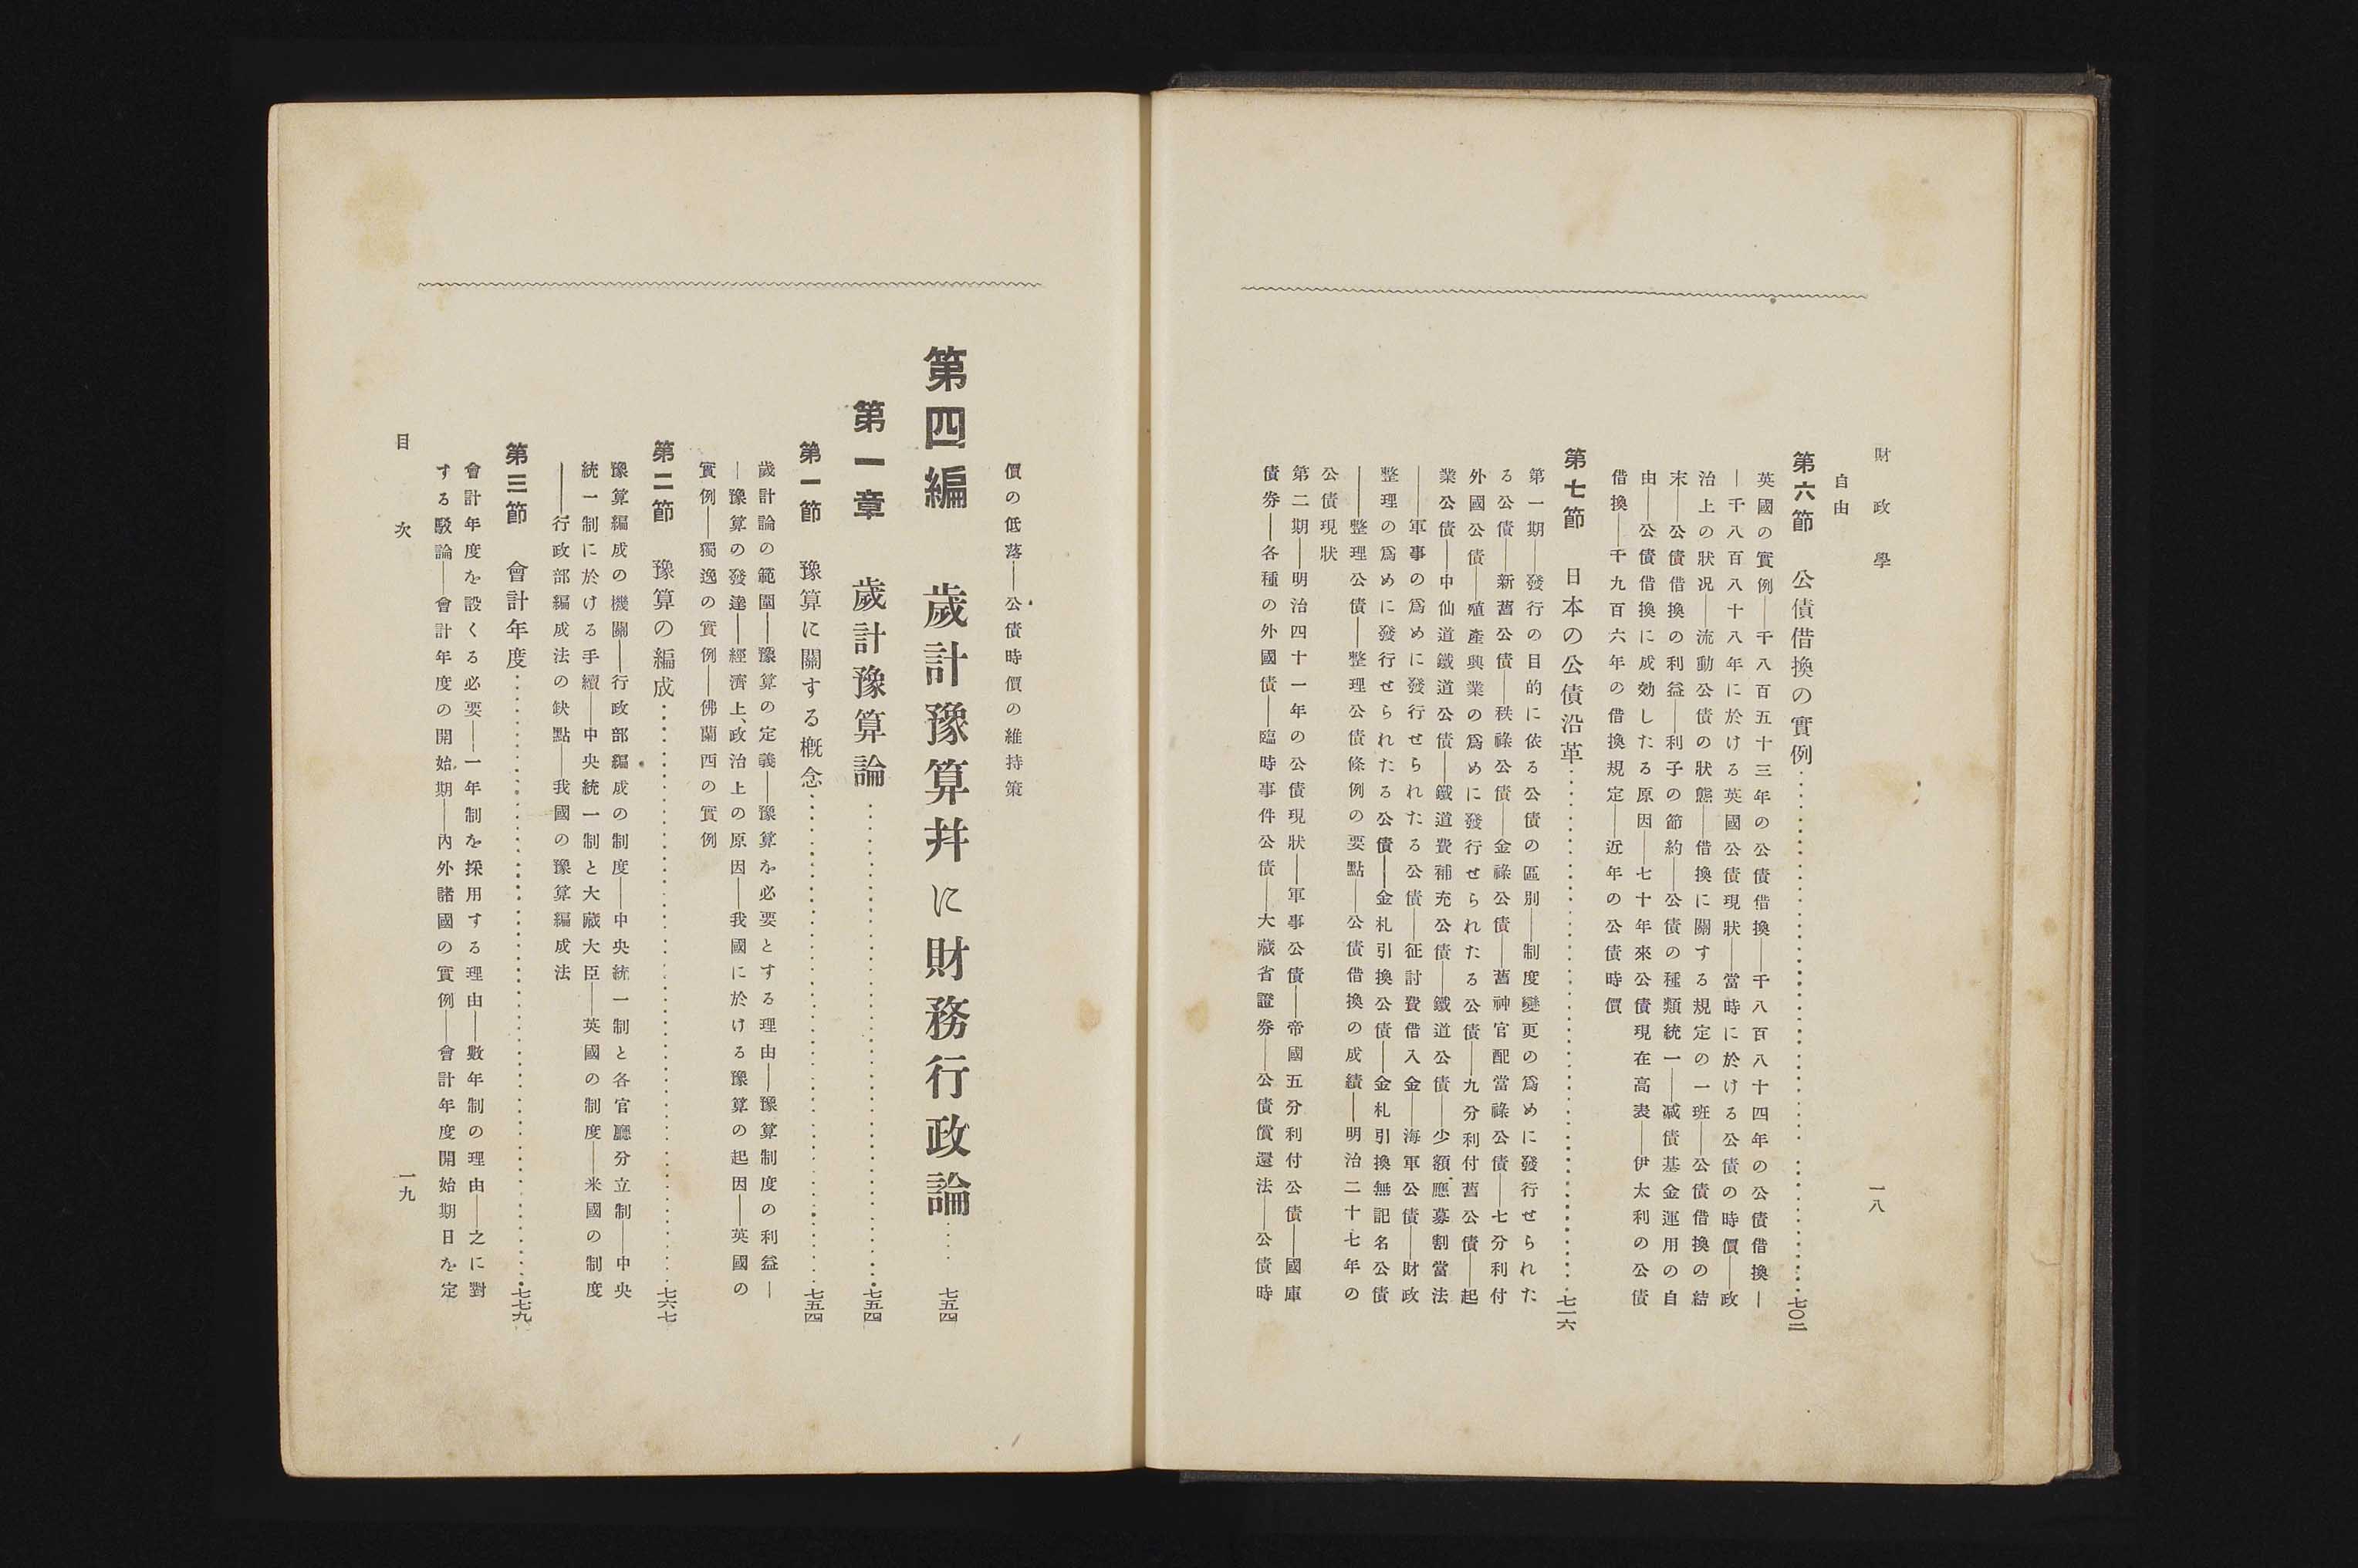 財政學
一八
自由
第六節 公債借換の實例……………………七〇二
英國の實例――千八百五十三年の公債借換――千八百八十四年の公債借換―
―千八百八十八年に於ける英國公債現狀――當時に於ける公債の時價――政
治上の狀況――流動公債の狀態――借換に關する規定の一班――公債借換の結
末――公債借換の利益――利子の節約――公債の種類統一――減債基金運用の自
由――公債借換に成効したる原因――七十年來公債現在高表――伊太利の公債
借換――千九百六年の借換規定――近年の公債時價
第七節 日本の公債沿革……………………七一六
第一期――發行の目的に依る公債の區別――制度變更の爲めに發行せられた
る公債――新舊公債――秩祿公債――金祿公債――舊神官配當祿公債――七分利付
外國公債――殖產興業の爲めに發行せられたる公債――九分利付舊公債――起
業公債――中仙道鐵道公債――鐵道費補充公債――鐵道公債――少額應募割當法
――軍事の爲めに發行せられたる公債――征討費借入金――海軍公債――財政
整理の爲めに發行せられたる公債――金札引換公債――金札引換無記名公債
――整理公債――整理公債條例の要點――公債借換の成績――明治二十七年の
公債現狀
第二期――明治四十一年の公債現狀――軍事公債――帝國五分利付公債――國庫
債券――各種の外國債――臨時事件公債――大藏省證券――公債償還法――公債時
價の低落――公債時價の維持策
第四編 歲計豫算幷に財務行政論……七五四
第一章 歲計豫算論……………………七五四
第一節 豫算に關する槪念……………………七五四
歲計論の範圍――豫算の定義――豫算を必要とする理由――豫算制度の利益―
―豫算の發達――經濟上、政治上の原因――我國に於ける豫算の起因――英國の
實例――獨逸の實例――佛蘭西の實例
第二節 豫算の編成……………………七六七
豫算編成の機關――行政部編成の制度――中央統一制と各官廳分立制――中央
統一制に於ける手續――中央統一制と大藏大臣――英國の制度――米國の制度
――行政部編成法の缺點――我國の豫算編成法
第三節 會計年度……………………七七九
會計年度を設くる必要――一年制を採用する理由――數年制の理由――之に對
する駁論――會計年度の開始期――內外諸國の實例――會計年度開始期日を定
目次
一九